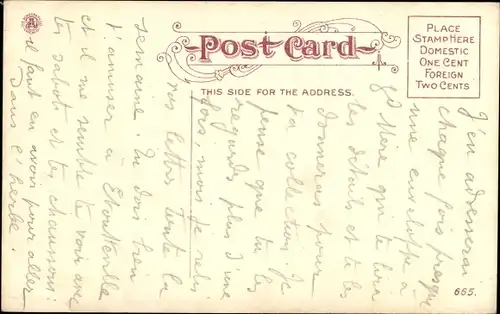 POST CARD
THIS SIDE FOR THE ADDRESS.
PLACE
STAMP HERE
DOMESTIC
ONE CENT
FOREIGN
TWO CENTS
J'en adresserai
chaque fois presque
une enveloppe à
qd Mère qui te lira
les détails et te les
donnera pour
ta collection. Je
pense que tu les
regardes plus d'une
fois, mais je relis
vos lettres toute la
semaine. Tu dois bien
t'amuser à
et il me semble te voir avec
tes sabots et tes chaussons!
il faut en avoir pour aller
dans l'herbe.
665.